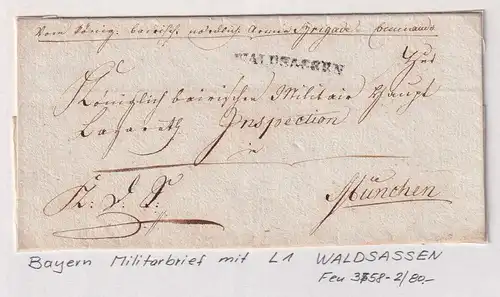 Vom König: bairisch: nördlich: Armee Brigade Commando
WALDSASSEN
Zur
Königlich bairischen Militair Haupt
Lazareth Inspection
in
K: D: S:
München
Bayern Militärbrief mit L1 WALDSASSEN
Feu 3758-2/80,-